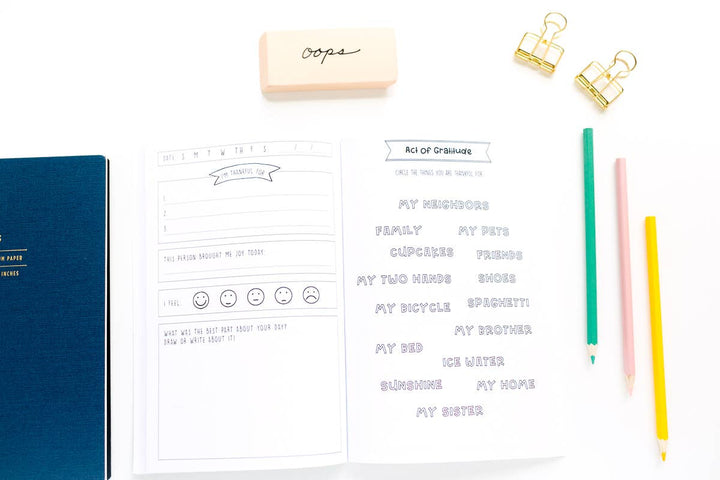 oops
S
M PAPER
INCHES
DATE: S M T W TH F S / /
I'M THANKFUL FOR
1.
2.
3.
THIS PERSON BROUGHT ME JOY TODAY:
I FEEL:
WHAT WAS THE BEST PART ABOUT YOUR DAY?
DRAW OR WRITE ABOUT IT!
Act of Gratitude
CIRCLE THE THINGS YOU ARE THANKFUL FOR.
MY NEIGHBORS
FAMILY MY PETS
CUPCAKES FRIENDS
MY TWO HANDS SHOES
MY BICYCLE SPAGHETTI
MY BROTHER
MY BED
ICE WATER
SUNSHINE MY HOME
MY SISTER